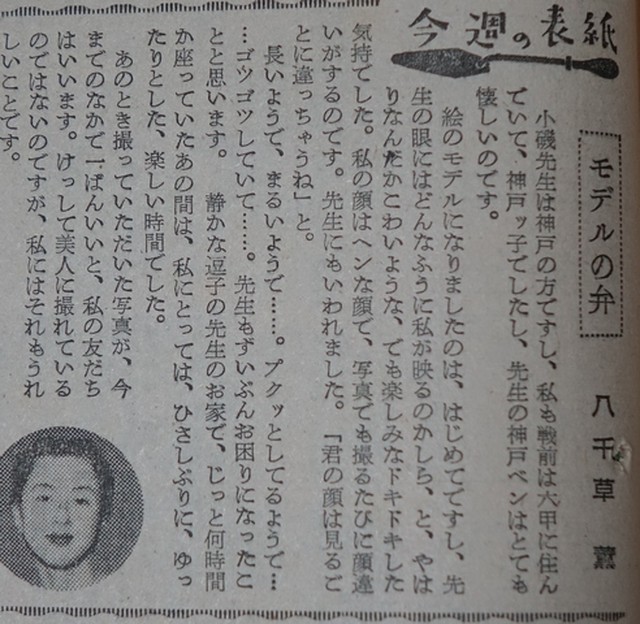 今週の表紙
モデルの弁
八千草 薫
小磯先生は神戸の方ですし、私も戦前は六甲に住ん
でいて、神戸ッ子でしたし、先生の神戸ベンはとても
懐しいのです。
絵のモデルになりましたのは、はじめてですし、先
生の眼にはどんなふうに私が映るのかしら、と、やは
りなんだかこわいような、でも楽しみなドキドキした
気持でした。私の顔はヘンな顔で、写真でも撮るたびに顔違
いがするのです。先生にもいわれました。「君の顔は見るご
とに違っちゃうね」と。
長いようで、まるいようで……。プクッとしてるようで…
…ゴツゴツしていて……。先生もずいぶんお困りになったこ
とと思います。静かな逗子の先生のお家で、じっと何時間
か座っていたあの間は、私にとっては、ひさしぶりに、ゆっ
たりとした、楽しい時間でした。
あのとき撮っていただいた写真が、今
までのなかで一ぱんいいと、私の友だち
はいいます。けっして美人に撮れている
のではないのですが、私にはそれもうれ
しいことです。